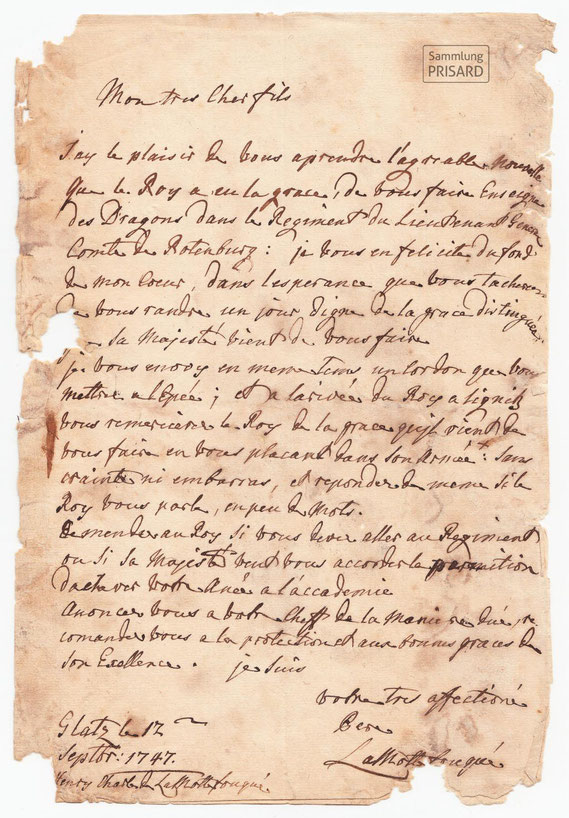 Sammlung
PRISARD
Mon tres Cher fils
J'ay le plaisir de vous aprendre l'agreable Nouvelle
que le Roy a eu la grace, de vous faire Enseigne
des Dragons dans le Regiment du Lieutenant General
Comte de Rotenburg: je vous en felicite du fond
de mon Coeur, dans l'esperance que vous tacherez
de vous randre un jour digne de la grace distinguée,
sa Majesté vient de vous faire
je vous envoy en meme Tems un Cordon que vous
mettre a l'Epée; et a larivée du Roy a Lignitz
vous remercierer le Roy de la grace qu'il vient de
vous faire en vous placant dans son Armée: sans
crainte ni embarras, et reponder de meme si le
Roy vous parle, en peu de Mots.
Demender au Roy si vous deve aller au Regiment
ou si sa Majesté veut vous accorder la parmition
dachever votre Anée a l'accademie
Anoncer vous a votre Cheff de la Maniere düe, re
comander vous a la protection et aux bonnes graces de
son Exellence. je suis
votre tres affectioné
Pere
LaMotte fouqué
Glatz le 12
Septbr: 1747.
Henry Charle de LaMotte fouqué